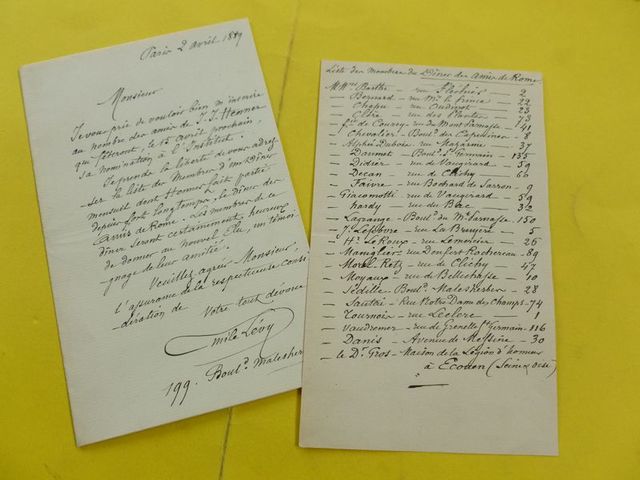 Paris 2 avril 1889
Monsieur
Je vous prie de vouloir bien m'inscrire
au nombre des amis de J.J. Henner
qui fêteront, le 13 avril prochain,
sa nomination à l'Institut.
Je prends la liberté de vous adres
ser la liste des Membres d'un Dîner
mensuel dont Henner fait partie
depuis fort longtemps, le Dîner des
Amis de Rome. Les membres de ce
dîner seront certainement heureux
de donner au nouvel Elu, un témoi
gnage de leur amitié.
Veuillez agréer Monsieur,
l'assurance de la respectueuse consi
dération de
Votre tout dévoué
Emile Lévy
199. Boulᵈ Malesher
Liste des Membres du Dîner des amis de Rome
MMrs Barthe - rue 2
— Bernard - rue 22
— Chapu - rue Oudinot 23
— Clère - rue des Plantes 73
— de Coursy - rue du Mont Parnasse 41
— Chevalier - Boulᵈ des Capucines 8
— Alphée Dubois - rue Mazarine 37
— Daumet - Boulᵈ St Germain 135
— Didier - rue de Vaugirard 59
— Decan - rue de Clichy 60
— Faivre - rue Bochard de Sarron 9
— Giacomotti - rue de Vaugirard 59
— hardy - rue du Bac 32
— Lagrange - Boulᵈ du Mt Parnasse 150
— J. Lefebvre - rue La Bruyère 5
— Hr Le Roux - rue Lemercier 26
— Maniglier - rue Denfert Rochereau 89
— Morel Retz - rue de Clichy 47
— Moyaux - rue de Bellechasse 10
— Sédille - Boulᵈ Malesherbes 28
— Sautai - Rue Notre Dame des Champs 74
— Tournois - rue Leclerc 1
— Vaudremer - rue de Grenelle St Germain 116
— Danis - Avenue de Messine 30
— le Dr Gros - Maison de la Légion d'honneur
à Ecouen (Seine & Oise)